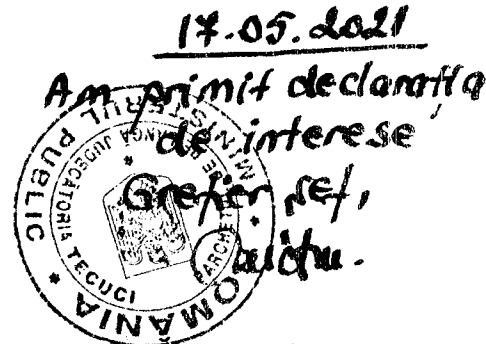 17.05.2021
Am primit declarația
de interese
Grefier șef,
ROMÂNIA * MINISTERUL PUBLIC *
PARCHETUL DE PE LÂNGĂ JUDECĂTORIA TECUCI